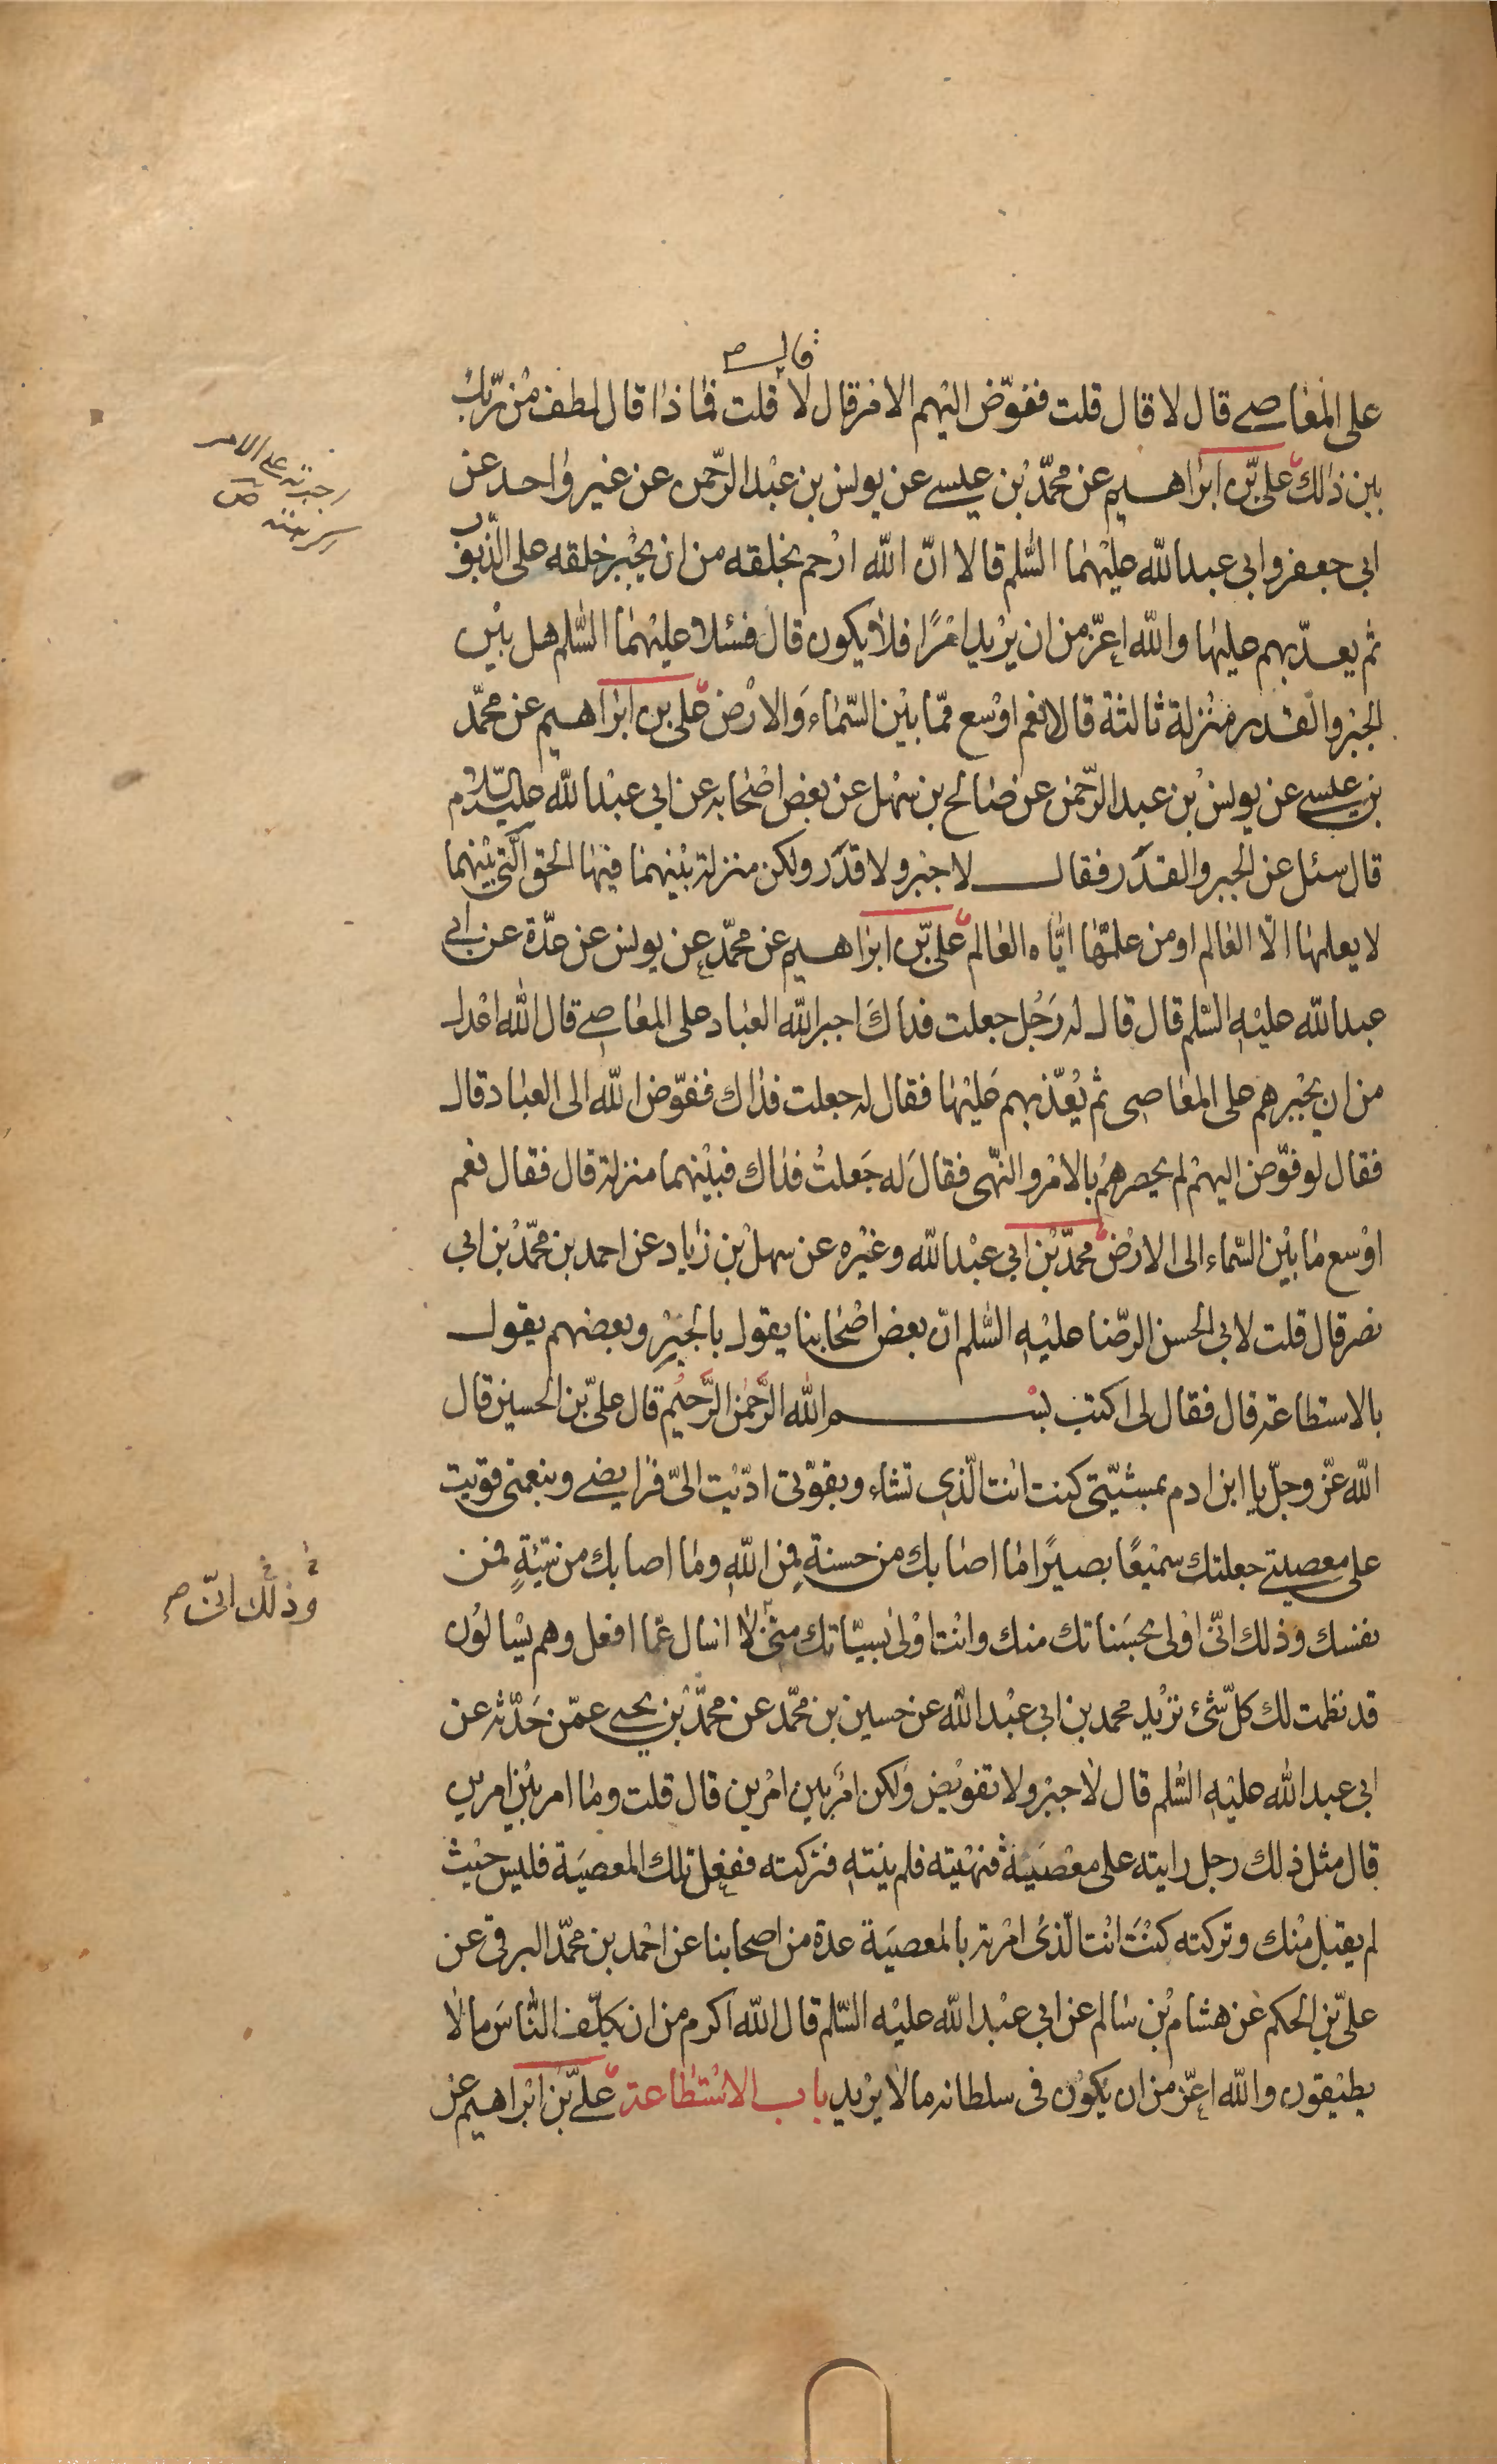 قال ص
على المعاصي قال لا قال قلت ففوّض اليهم الامر قال لا قلت فماذا قال لطف من ربك
بين ذلك علىّ بن ابراهيم عن محمّد بن عيسى عن يونس بن عبد الرّحمن عن غير واحد عن
ابى جعفر وابى عبدالله عليهما السّلم قالا انّ الله ارحم بخلقه من ان يجبر خلقه على الذّنوب
ثم يعذّبهم عليها والله اعزّ من ان يريد امرًا فلا يكون قال فسئلا عليهما السّلم هل بين
الجبر والقدر منزلة ثالثة قالا نعم اوسع ممّا بين السّماء والارض على بن ابراهيم عن محمّد
بن عيسى عن يونس بن عبد الرّحمن عن صالح بن سهل عن بعض اصحابه عن ابى عبدالله عليه السّلام
قال سئل عن الجبر والقدَر فقال لا جبر ولا قدَر ولكن منزلة بينهما فيها الحق الّتى بينهما
لا يعلمها الّا العالم او من علّمها ايّاه العالم علىّ بن ابراهيم عن محمّد عن يونس عن عدّة عن ابى
عبدالله عليه السّلم قال قال له رَجُل جعلت فداكَ اجبر الله العباد على المعاصي قال الله اعدل
من ان يجبرهم على المعاصى ثم يُعذّبهم عَليها فقال له جعلت فداك ففوّض الله الى العباد قال
فقال لو فوّض اليهم لم يحصرهُم بالامر والنّهى فقالَ له جَعلتُ فداك فبينهما منزلة قال فقال نعم
اوسع ما بين السّماء الى الارض محمّد بن ابى عبدالله وغيره عن سهل بن زياد عن احمد بن محمّد بن ابى
نصر قال قلت لابى الحسن الرّضا عليه السّلم انّ بعض اصحابنا يقول بالجبرِ وبعضهم يقول
بالاستطاعة قال فقال لى اكتب بسم الله الرَّحمٰن الرَّحيُم قال علىّ بن الحسين قال
الله عزّ وجلّ يا ابن ادم بمشيّتى كنت انت الّذى تشاء وبقوّتى ادّيت الىّ فرايضى وبنعمتى قويت
على معصيتى جعلتك سميعًا بصيرًا ما اصابك من حسنة فمِن اللهِ وما اصابك من سيّئةٍ فمن
نفسك وذلك انّى اولى بحسَناتك منك وانت اولى بسيّاتك منّى لا اسال عمّا افعل وهم يسْالوُن
قد نظمت لك كلّ شئ تريد محمد بن ابى عبد الله عن حسين بن محمّد عن محمّد بن يحيى عمّن حَدّثه عن
ابى عبد الله عليهِ السّلم قال لا جبر ولا تفويض ولكن امر بين امرين قال قلت وما امر بين امرين
قال مثل ذلك رجل رايته على معْصَية فنهيته فلم ينته فتركته ففعل تلك المعصيَة فليس حيْث
لم يقبل منك وتركته كنْتَ انت الّذى امرته بالمعصيَة عدة من اصحابنا عن احمد بن محمّد البرقى عن
علىّ بن الحكم عَن هشام بْن سالم عن ابى عبْد الله عليْه السّلم قال الله اكرم من ان يكلّف النّاسَ ما لا
يطيقون والله اعزّ من ان يكوُن فى سلطانه ما لا يريد باب الاسْتطاعة علىّ بن ابراهيم عن
على الامر
وذلك انّى ص